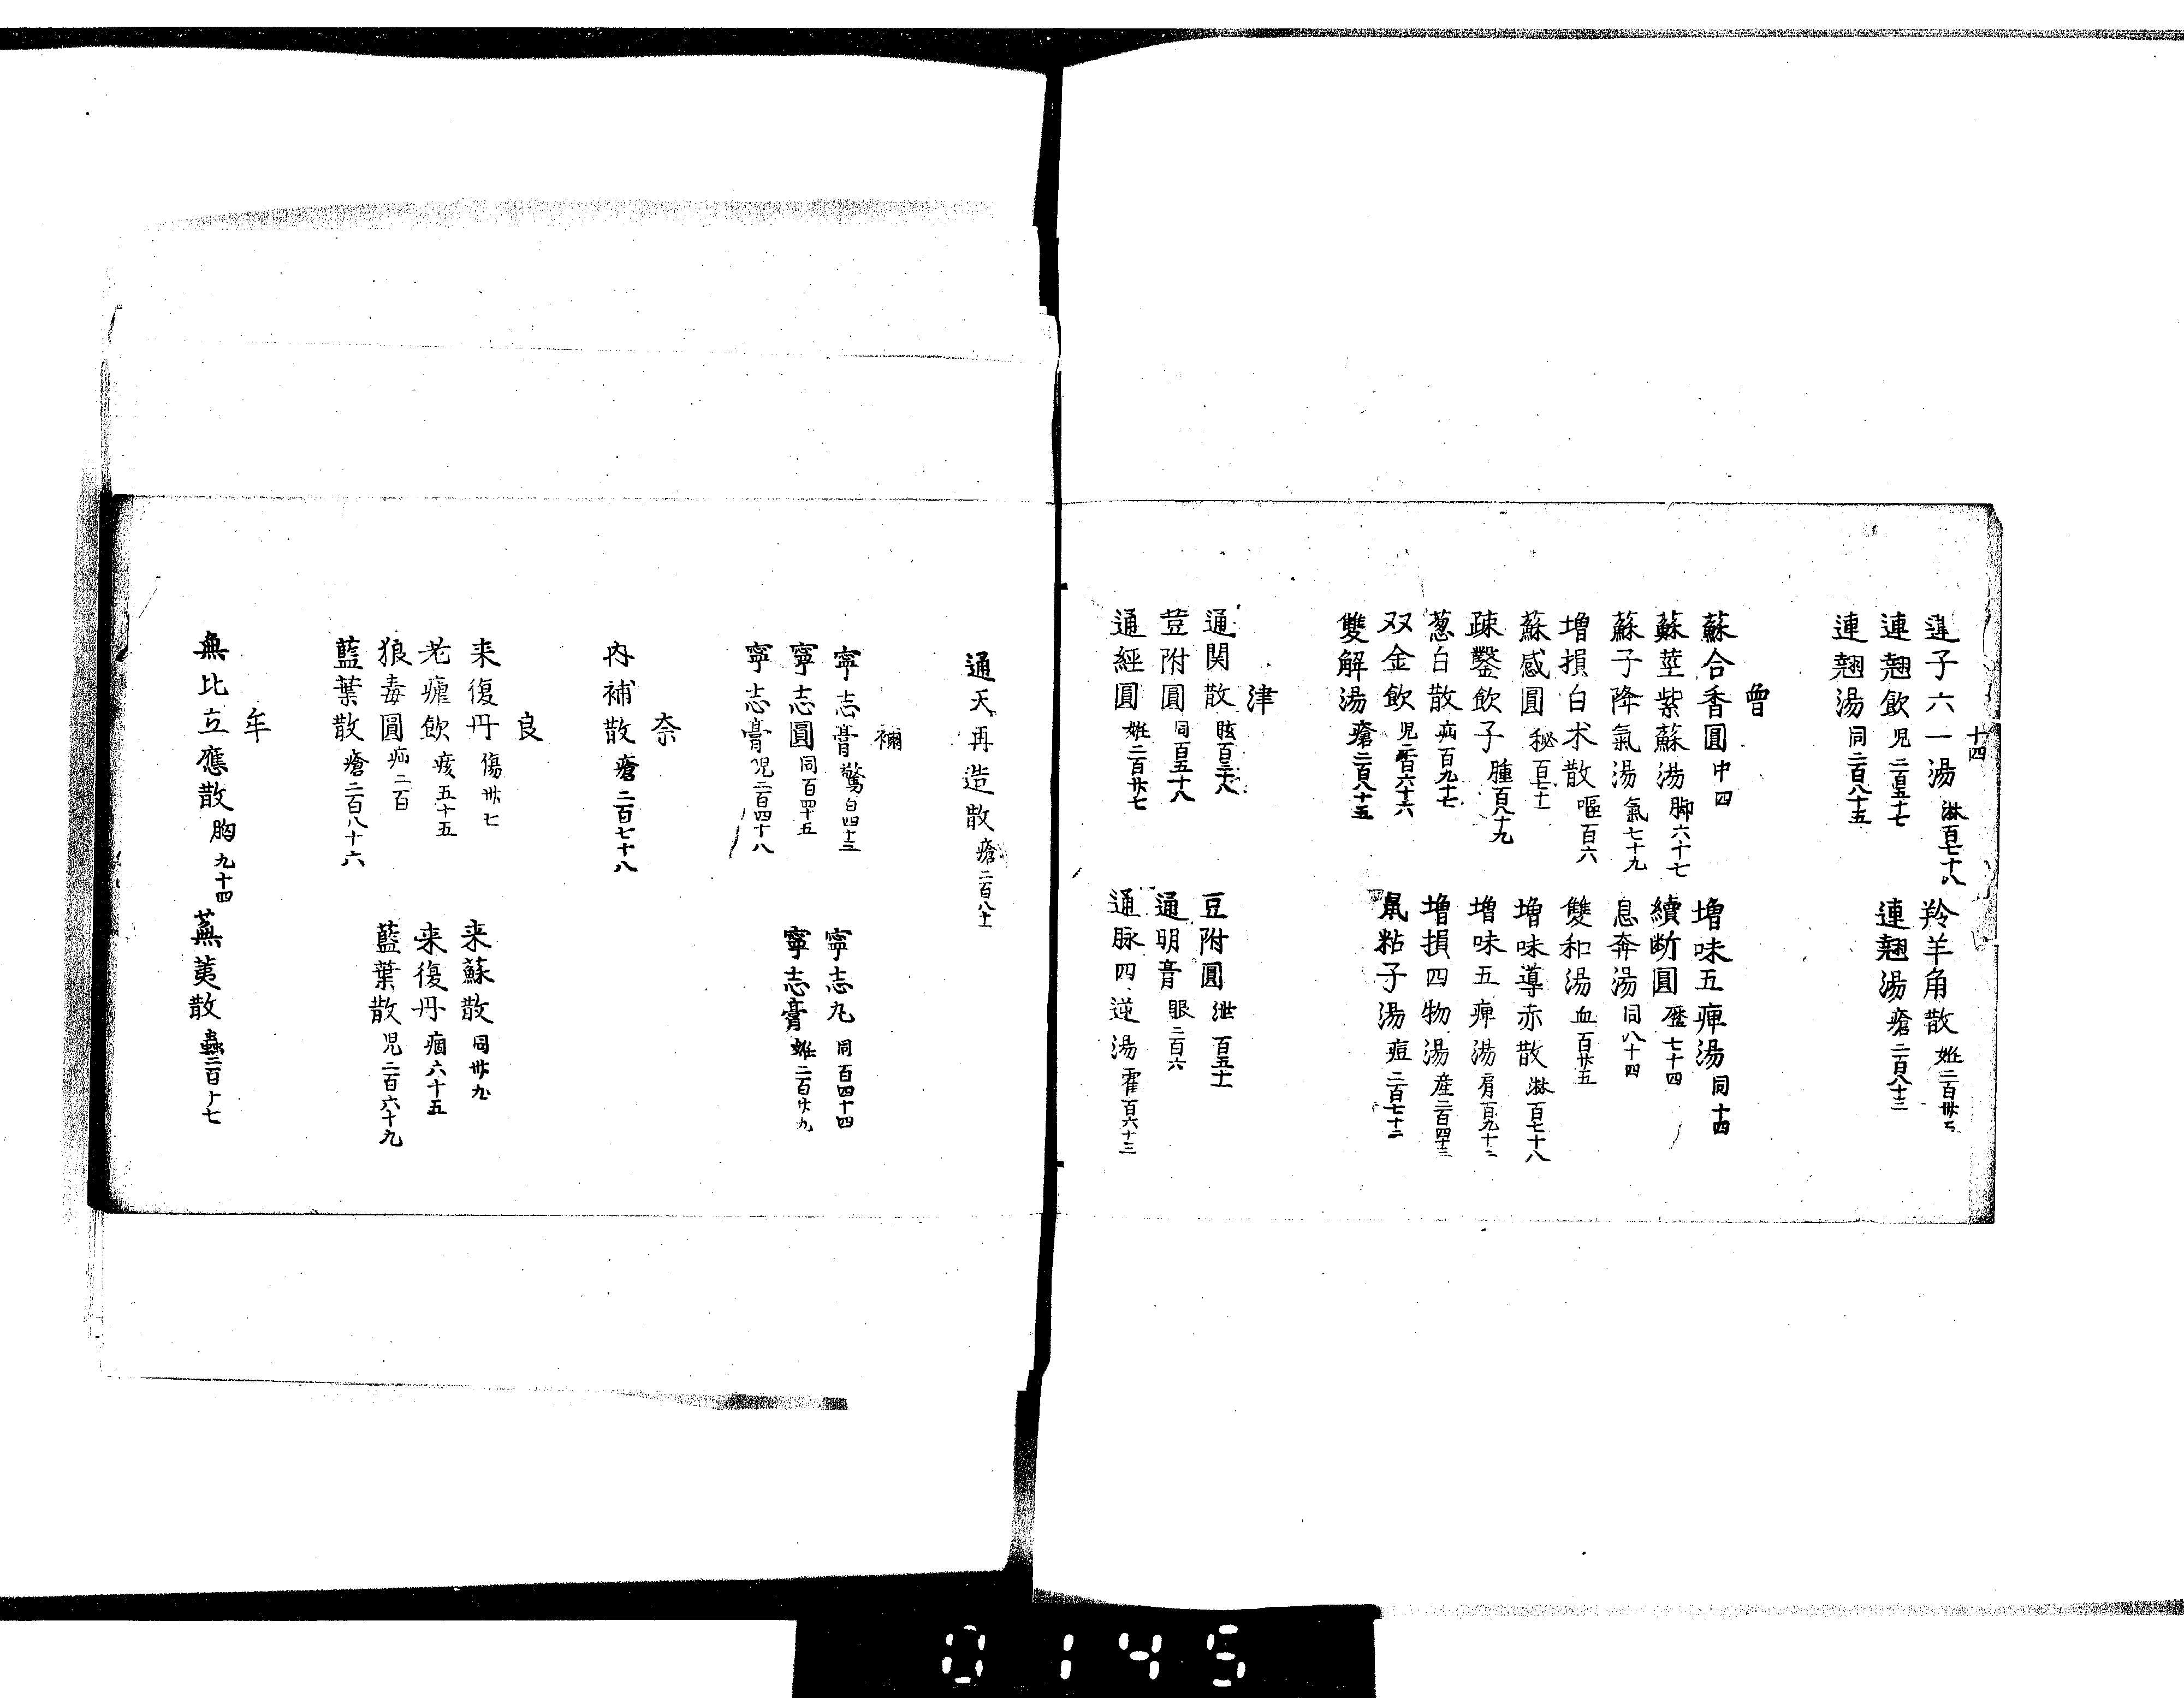 十四
蓮子六一湯 淋百七十八 羚羊角散 姙二百卅
連翹飲 児二百五十七 連翹湯 瘡二百八十三
連翹湯 同二百八十五
曾
蘇合香圓 中四 増味五痺湯 同十四
蘇莖紫蘇湯 脚六十七 續断圓 歷七十四
蘇子降氣湯 氣七十九 息奔湯 同八十四
増損白朮散 嘔百六 雙和湯 血百廿五
蘇感圓 秘百七十一 増味導赤散 淋百七十八
疎鑿飲子 腫百八十九 増味五痺湯 肩百九十二
葱白散 疝百九十七 増損四物湯 産二百四十三
双金飲 児二百六十六 鼠粘子湯 痘二百七十二
雙解湯 瘡二百八十五
津
通関散 眩百三十八 豆附圓 泄百五十一
荳附圓 同百五十八 通明膏 眼二百六
通經圓 姙二百廿七 通脉四逆湯 霍百六十三
通天再造散 瘡二百八十一
禰
寧志膏 驚百四十三 寧志丸 同百四十四
寧志圓 同百四十五 寧志膏 姙二百廿九
寧志膏 児二百四十八
奈
内補散 瘡二百七十八
良
来復丹 傷卅七 来蘇散 同卅九
老瘧飲 痎五十五 来復丹 痼六十五
狼毒圓 疝二百 藍葉散 児二百六十九
藍葉散 瘡二百八十六
牟
無比立應散 胸九十四 蕪荑散 蟲二百十七
0145